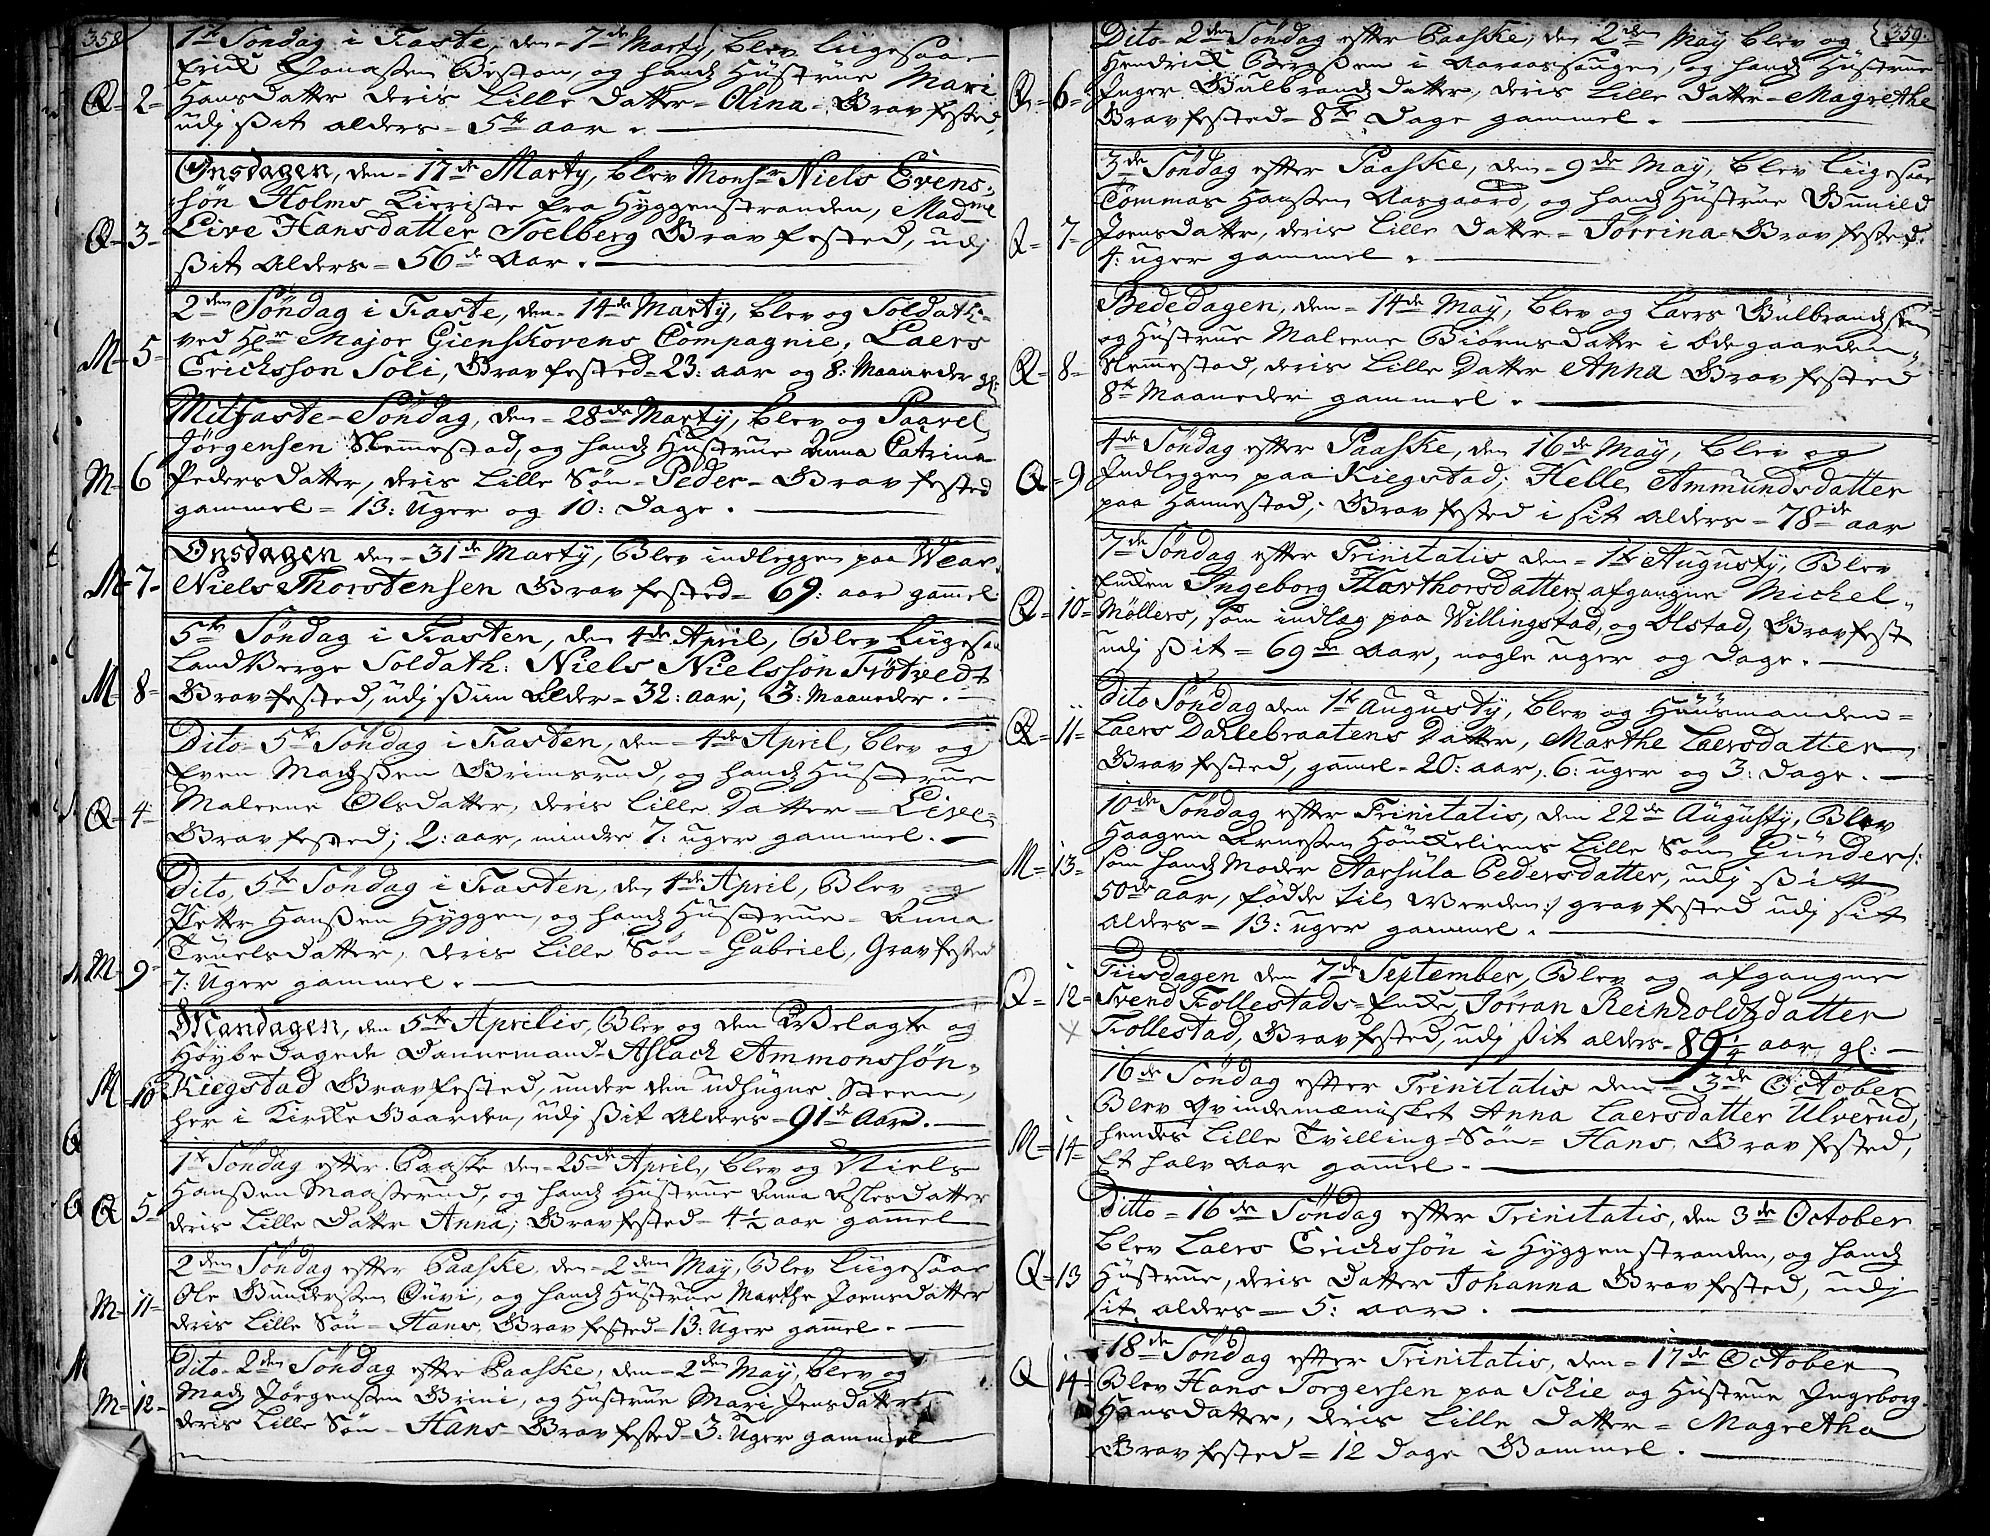 358
1te Søndag i Faste, den 7de Marty, blev Liigesaa
Erick Jonassen Beston, og hands Hüstrüe Mari
Q 2 Hansdatter deris Lille Datter Olina Gravfested,
udj ßit alders 5te aar.
Onsdagen, den 17de Marty, blev Monsr Niels Evens-
søn Holms Kieriste fra Hyggenstranden, Madme
Q 3 Live Hansdatter Soelberg Gravfested, udj
ßit Alders 56de Aar.
2den Søndag i Faste, den 14de Marty, blev og Soldath
ved Hr Major Gienskovens Compagnie, Laers
M 5 Ericksson Soli, Gravfested 23: aar og 8: Maaneder gl:
Mitfaste Søndag, den 28de Marty, blev og Paavel
Jørgensen Nemmestad, og hands Hustrue Anna Catrina
M 6 Pedersdatter, deris Lille Søn Peder Gravfested
gammel 13: Uger og 10: Dage.
Onsdagen den 31de Marty, Blev indleggen paa Wear
M 7 Niels Thorstensen Gravfested 69: aar gammel
5te Søndag i Fasten, den 4de April, Blev Liigesaa
Landverge Soldath: Niels Nielssøn Trøtvedt
M 8 Gravfested, udj ßin Alder 32: aar, 3: Maaneder.
Dito 5te Søndag i Fasten, den 4de April, blev og
Even Madßen Grimsrud, og hands Hüstrue
Maleene Olsdatter, deris Lille Datter Live
Q 4 Gravfested; 2: aar, mindre 7: uger gammel.
Dito, 5te Søndag i Fasten, den 4de April, Blev og
Petter Hanßen Hyggen, og hands Hustrue Anna
Truelsdatter, deris Lille Søn Gabriel, Gravfested
M 9 7: Uger gammel.
Mandagen, den 5te Aprilis, Blev og den Velagte og
Høybedagede Dannemand Aslack Ammonssøn
M 10 Kiegstad Gravfested, under den udhugne Steen,
her i Kirke Gaarden, udj ßit Alders 91de Aar.
1te Søndag efter Paaske den 25de April, blev og Niels
Hanßen Maasterud, og hands Hustrue Anna Aslesdatter
Q 5 deris Lille Datter Anna; Gravfested 4½ aar gammel
2den Søndag efter Paaske, den 2den May, Blev Liigesaa
Ole Gunderßen Guvi, og hands Hustrue Marthe Joensdatter
M 11 deris Lille Søn Hans, Gravfested 13: Uger gammel.
Dito 2den Søndag efter Paaske, den 2den May, blev og
Mads Jørgenßen Brini, og Hustrue Mari Jensdatter
M 12 deris Lille Søn Hans Gravfested 3: Uger gammel
359.
Dito 2den Søndag efter Paaske, den 2den May blev og
Hendrick Bergßen i Aaraashaugen, og hands Hustrue
Q 6 Inger Gulbrandsdatter, deris Lille datter Magrethe
Gravfested 8te Dage gammel.
3de Søndag efter Paaske, den 9de May, blev Liigesaa
Tommas Hanßen Aasgaard, og hands Hustrue Gunild
Q 7 Joensdatter, deris Lille Datter Jørrina Gravfested.
4: uger gammel.
Bededagen, den 14de May, blev og Laers Gulbrandsßen
og Hustrue Maleene Biørnsdatter i Ødegaarden
Q 8 Nemmestad, deris Lille Datter Anna Gravfested
8te Maaneder gammel.
4de Søndag efter Paaske, den 16de May, blev og
Q 9 Indleggen paa Kiegstad; Helle Ammundsdatter
paa Hannestad; Gravfested i sit alders 78de aar
7de Søndag efter Trinitatis den 1te Augusty, Blev
Enken Ingeborg Havthorsdatter, afgangne Michel
Q 10 Møllers, som indlag paa Willingstad, og Ølstad, Gravfest
udj ßit 69de Aar, nogle uger og dage.
Dito Søndag den 1te Augusty, blev og Huusmanden
Q 11 Laers Dahlebraatens Datter, Marthe Laersdatter
Gravfested, gammel 20: aar, 6: uger og 3: dage.
10de Søndag efter Trinitatis, den 22de Augusty, Blev
Haagen Arneßen Hønckeliens Lille Søn Günder /:
M 13 som hands Moder Aarsula Pedersdatter, udj ßit
50de aar, fødde til Werden:/ gravfested udj sit
alders 13: uger gammel.
Tiisdagen den 7de September, Blev og afgangne
Q 12 Svend Follestads Enke, Jørran Reinholdtzdatter
Follestad, Gravfested, udj ßit alders 89¼ aar gl:
16de Søndag efter Trinitatis den 3de October
Blev Qvindemænisket Anna Laersdatter Ulverud,
M 14 hendes Lille Tvilling-Søn Hans, Gravfested,
Et halv Aar gammel.
Ditto 16de Søndag efter Trinitatis, den 3de October
blev Laers Erickssøn i Hyggenstranden, og hands
Q 13 Hustrue, deris Datter Johanna Gravfested, udj
sit alders 5: aar.
18de Søndag efter Trinitatis, den 17de October
Q 14 Blev Hans Torgersen paa Schie og Hustrue Ingeborg
Hansdatter, deris Lille datter Magretha
Gravfested 12 Dage Gammel.